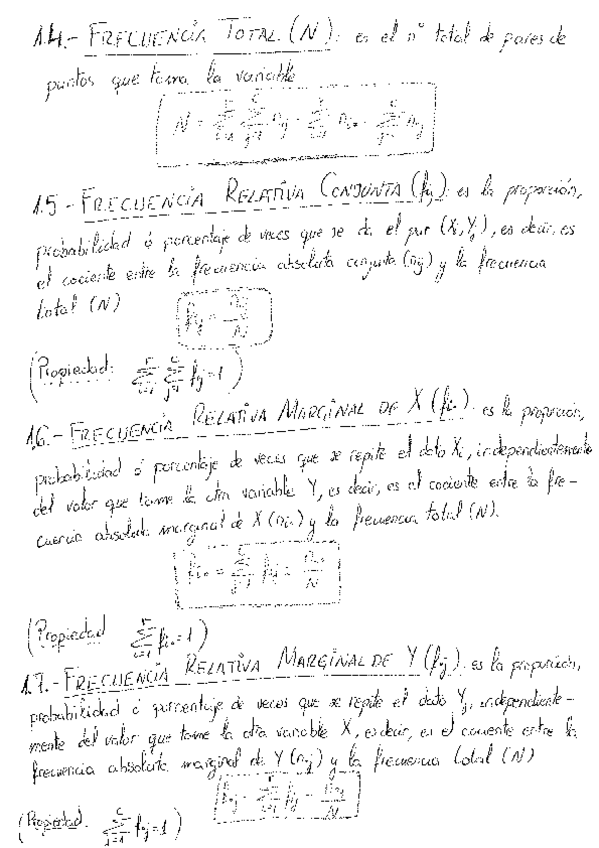 1.4.- FRECUENCIA TOTAL (N): es el nº total de pares de
puntos que toma la variable
N = ∑_{i=1}^{r} ∑_{j=1}^{c} nij = ∑_{i=1}^{r} ni• = ∑_{j=1}^{c} n•j
1.5 - FRECUENCIA RELATIVA CONJUNTA (fij): es la proporción,
probabilidad ó porcentaje de veces que se da el par (Xi, Yj), es decir, es
el cociente entre la frecuencia absoluta conjunta (nij) y la frecuencia
total (N)
fij = nij / N
(Propiedad: ∑_{i=1}^{r} ∑_{j=1}^{c} fij = 1)
1.6.- FRECUENCIA RELATIVA MARGINAL DE X (fi•): es la proporción,
probabilidad ó porcentaje de veces que se repite el dato Xi, independientemente
del valor que tome la otra variable Y, es decir, es el cociente entre la fre-
cuencia absoluta marginal de X (ni•) y la frecuencia total (N).
fi• = ∑_{j=1}^{c} fij = ni• / N
(Propiedad ∑_{i=1}^{r} fi• = 1)
1.7.- FRECUENCIA RELATIVA MARGINAL DE Y (f•j): es la proporción,
probabilidad ó porcentaje de veces que se repite el dato Yj, independiente-
mente del valor que tome la otra variable X, es decir, es el cociente entre la
frecuencia absoluta marginal de Y (n•j) y la frecuencia total (N)
f•j = ∑_{i=1}^{r} fij = n•j / N
(Propiedad. ∑_{j=1}^{c} f•j = 1)